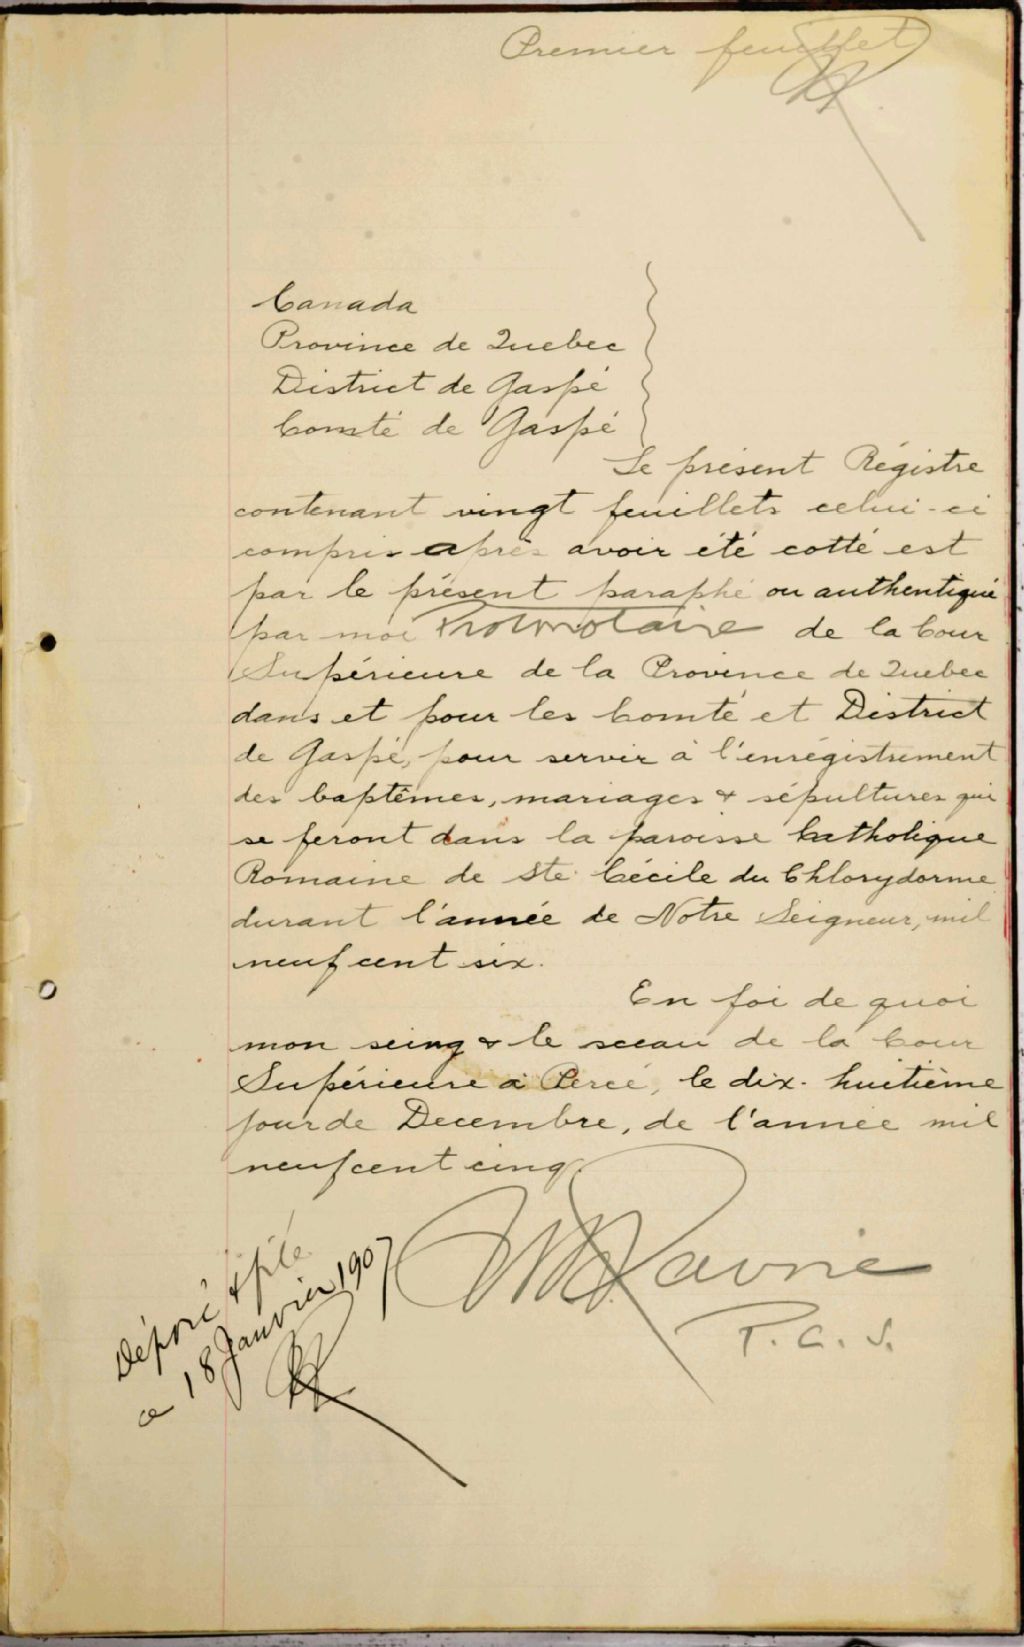 Premier feuillet
Canada
Province de Quebec
District de Gaspé
Comté de Gaspé
Le présent Régistre
contenant vingt feuillets celui-ci
compris après avoir été cotté est
par le présent paraphé ou authentiqué
par moi Protonotaire de la Cour
Supérieure de la Province de Quebec
dans et pour les Comté et District
de Gaspé, pour servir à l'enrégistrement
des baptêmes, mariages & sépultures qui
se feront dans la paroisse Catholique
Romaine de Ste Cécile du Chlorydorme
durant l'année de Notre Seigneur, mil
neuf cent six.
En foi de quoi
mon seing & le sceau de la Cour
Supérieure à Percé, le dix-huitième
jour de Decembre, de l'année mil
neuf cent cinq.
Lavoie
P. C. S.
Déposé & filé
ce 18 Janvier 1907